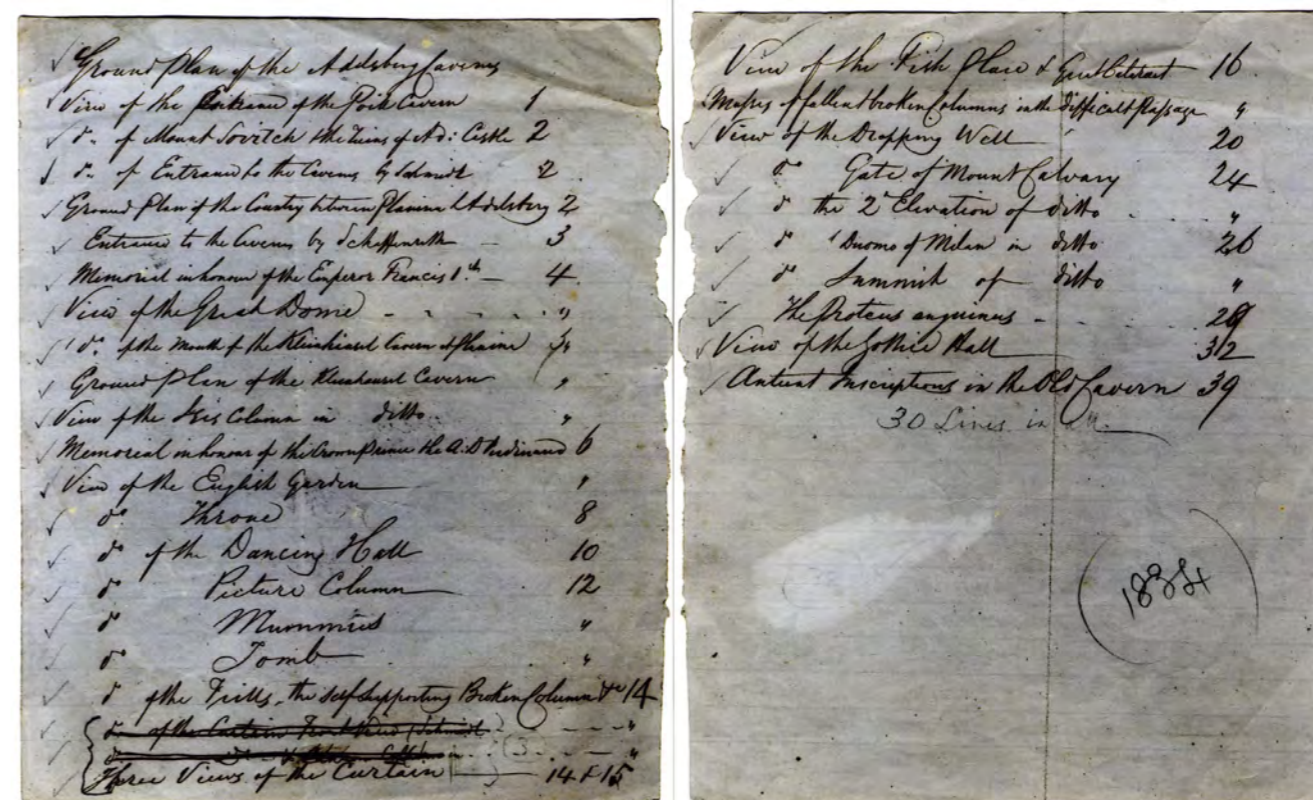 Ground Plan of the Adelsberg Caverns
View of the Entrance of the Poik Cavern 1
do. of Mount Sovitch the Ruins of Ad: Castle 2
do. of Entrance to the Caverns by Schmidt 2
Ground Plan of the Country between Planina & Adelsberg 2
Entrance to the Caverns by Schaffenrath 3
Memorial in honour of the Emperor Francis 1st 4
View of the Great Dome "
do. of the Mouth of the Kleinhäusel Cavern Planina "
Ground Plan of the Kleinhäusel Cavern "
View of the Iris Column in ditto "
Memorial in honour of the Crown Prince the A. D Ferdinand 6
View of the English Garden "
do Throne 8
do of the Dancing Hall 10
do Picture Column 12
do Mummies "
do Tomb "
do of the Frills, the self supporting Broken Column &c 14
do. of the Curtain Front View (Schmidt "
do do "
Three Views of the Curtain 14 & 15
View of the Fish Place & 16
Masses of fallen & broken Columns in the difficult Passage "
View of the Dropping Well 20
do Gate of Mount Calvary 24
do the 2d Elevation of ditto "
do Duomo of Milan in ditto 26
do Summit of ditto "
The Proteus anguinus 29
View of the Gothic Hall 32
Antient Inscriptions in the Old Cavern 39
30 Lines in all
1884